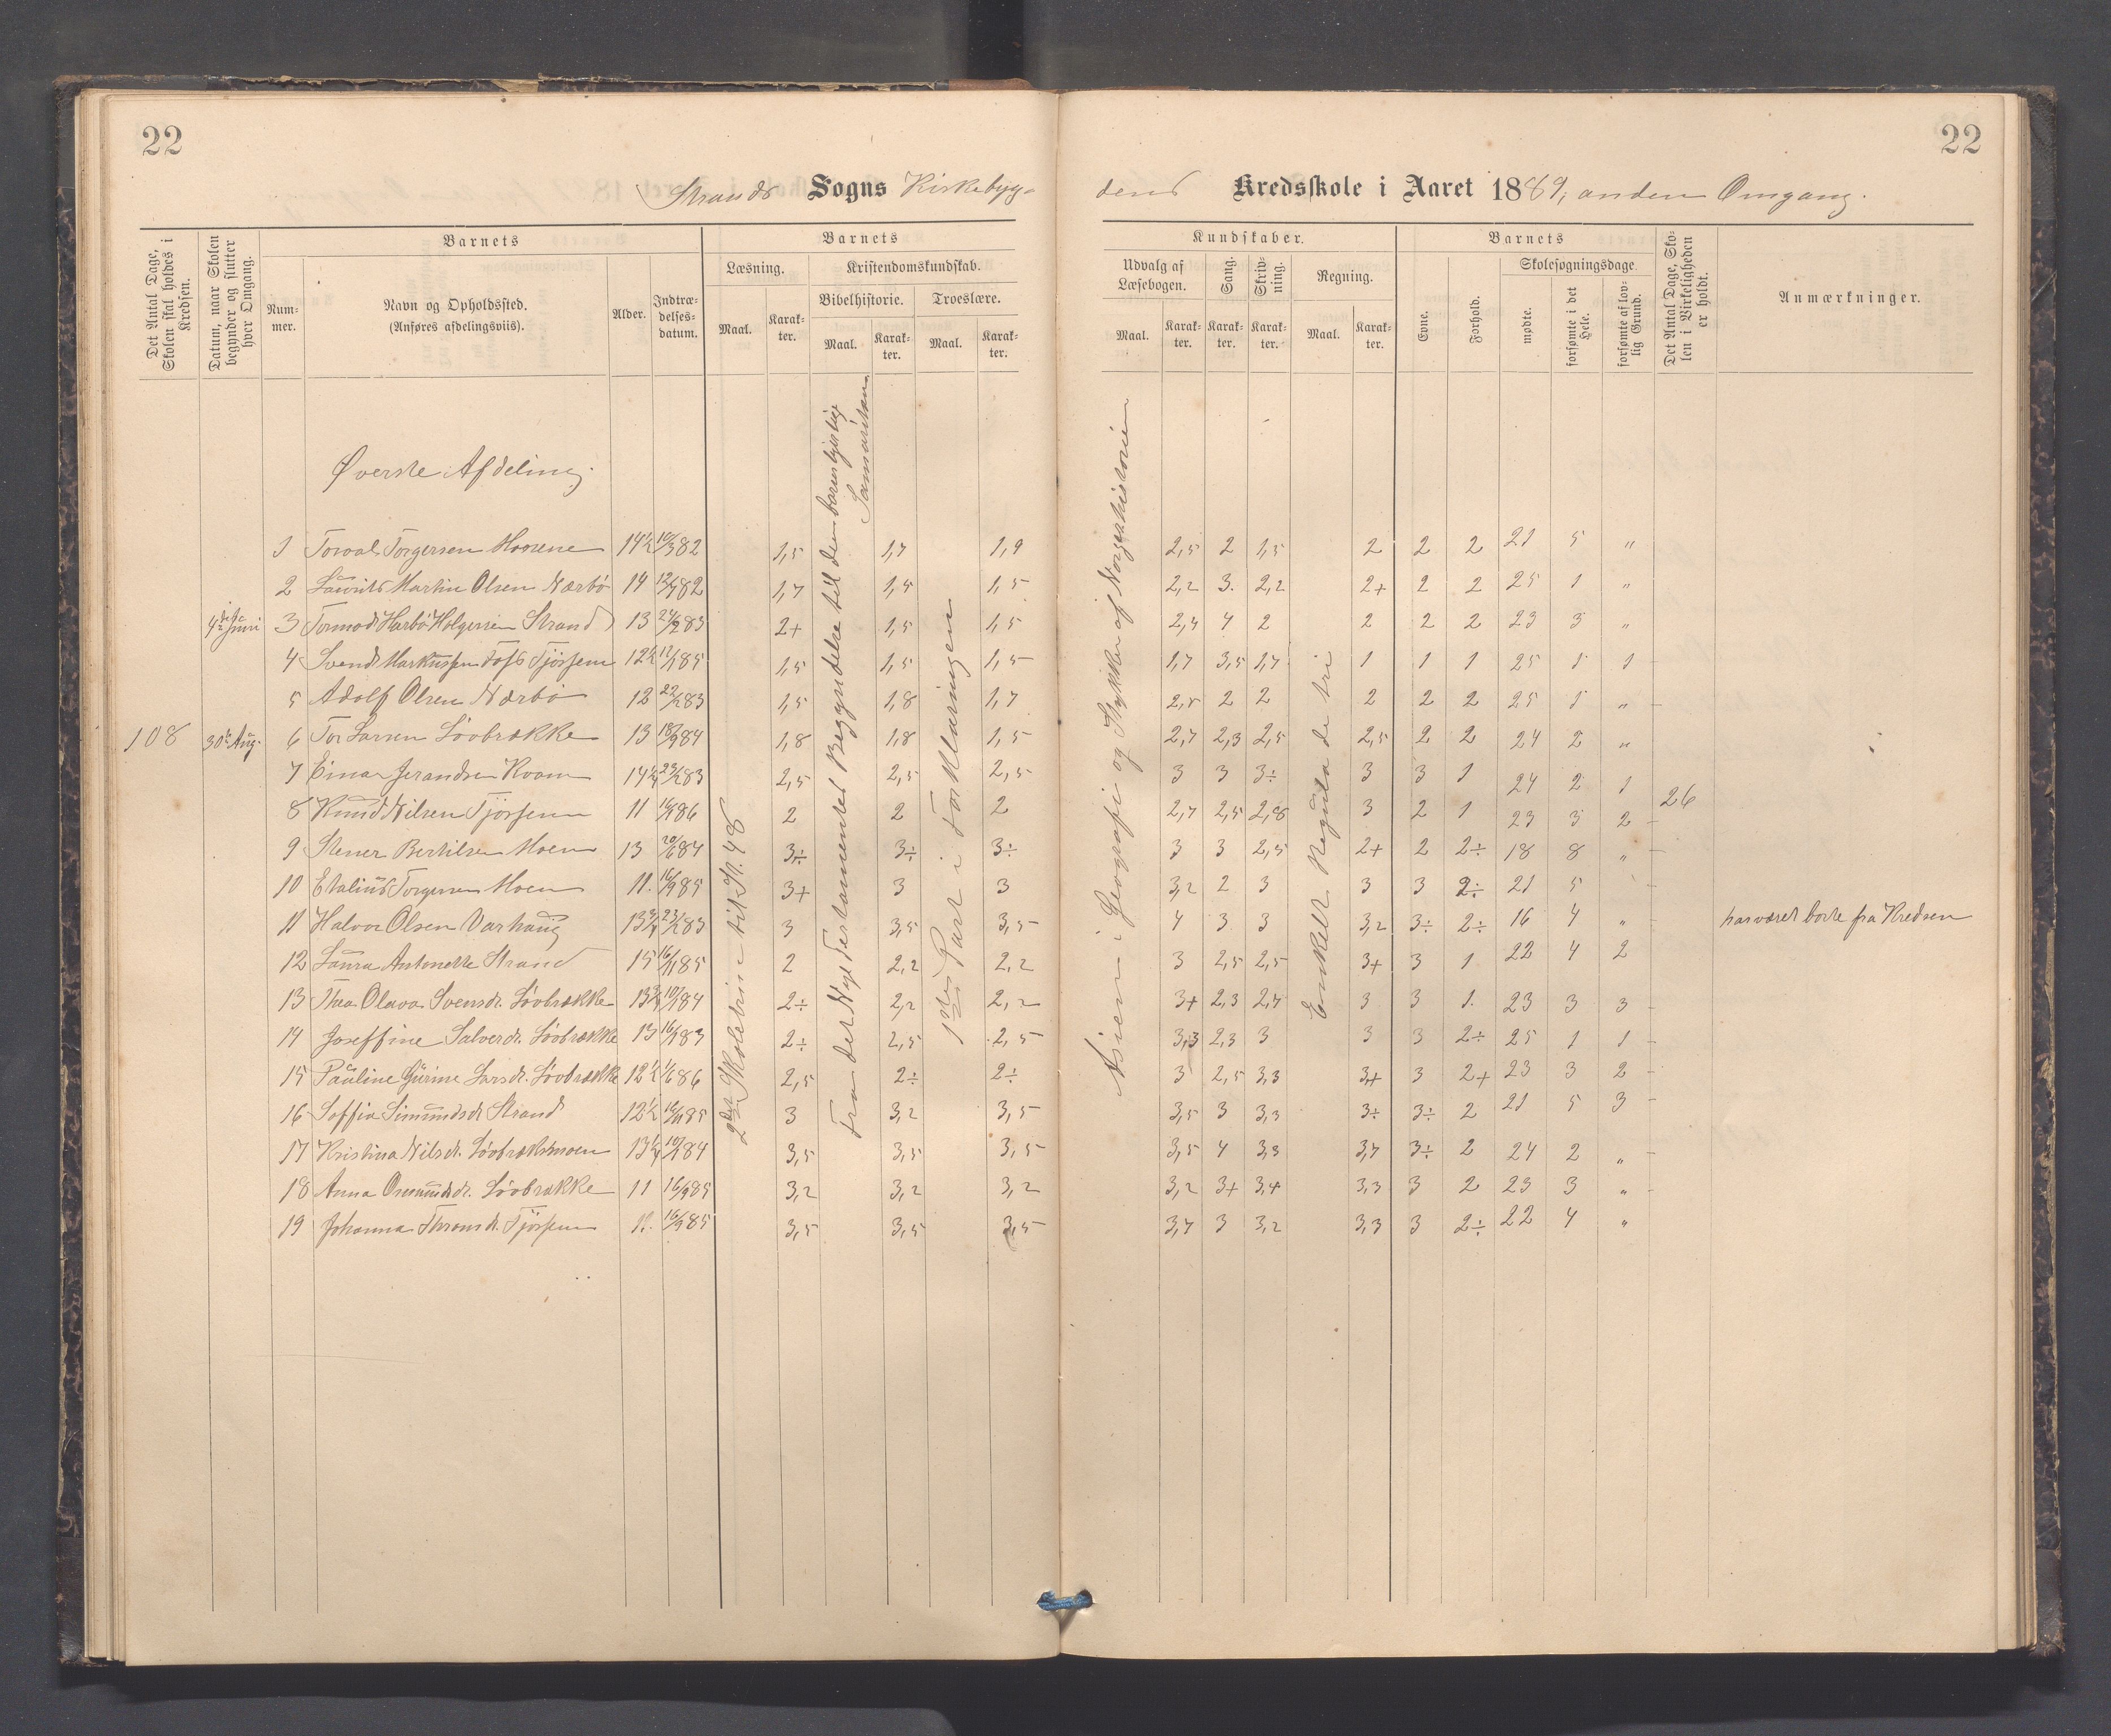 22
22
Strands Sogns Kirkebyg-
dens Kredsskole i Aaret 1889, anden Omgang.
Det Antal Dage, Skolen skal holdes i Kredsen.
Datum, naar Skolen begynder og slutter hver Omgang.
Barnets
Num-
mer.
Navn og Opholdssted.
(Anføres afdelingsviis).
Alder.
Indtræ-
delses-
datum.
Barnets
Læsning.
Maal.
Karak-
ter.
Kristendomskundskab.
Bibelhistorie.
Maal.
Karak-
ter.
Troeslære.
Maal.
Karak-
ter.
Kundskaber.
Udvalg af
Læsebogen.
Maal.
Karak-
ter.
Sang.
Karak-
ter.
Skriv-
ning.
Karak-
ter.
Regning.
Maal.
Karak-
ter.
Barnets
Evne.
Forhold.
Skolesøgningsdage.
mødte.
forsømte i det Hele.
forsømte af lov-
lig Grund.
Det Antal Dage, Sko-
len i Virkeligheden
er holdt.
Anmærkninger.
Øverste Afdeling.
108
4de Juni
30te Aug.
2den Skolebin til St. 48
Fra det Nye Testamentes Begyndelse til den barmhjertige
Samaritan.
1ste Part i Forklaringen
Asien i Geografi og Stykker af Norgeshistorien
Enkelt Regula de tri
26
1 Torval Torgersen 14½ 82 1,5 1,7 1,9 2,5 2 1,5 2 2 2 21 5 "
2 Laurits Martin Olsen Nærbö 14 82 1,7 1,5 1,5 2,2 3. 2,2 2+ 2 2 25 1 "
3 Tormod Harbö Holgersen Strand 13 83 2+ 1,5 1,5 2,4 4 2 2 2 2 23 3 "
4 Svend Markussen Tofs Tjössem 12½ 85 1,5 1,5 1,5 1,7 3,5 1,7 1 1 1 25 1 1
5 Adolf Olsen Nærbö 12 83 1,5 1,8 1,7 2,5 2 2 2 2 2 25 1 "
6 Tor Larsen Lövbrække 13 84 1,8 1,8 1,5 2,7 2,3 2,5 2,5 2 2 24 2 "
7 Einar Jerandsen Kvam 14¼ 83 2,5 2,5 2,5 3 3 3÷ 3 3 1 24 2 1
8 Knud Nilsen Tjössem 11 86 2 2 2 2,7 2,5 2,8 3 2 1 23 3 2
9 Stener Bertilsen Moen 13 84 3÷ 3÷ 3÷ 3 3 2,5 2+ 2 2÷ 18 8 "
10 Torgersen Moen 11. 85 3+ 3 3 3,2 2 3 3 3 2÷ 21 5
11 Halvor Olsen Varhaug 13¾ 83 3 3,5 3,5 4 3 3 3,2 3÷ 2÷ 16 4 " har været borte fra Kredsen
12 Laura Antonette Strand 15 85 2 2,2 2,2 3 2,5 2,5 3+ 3 1 22 4 2
13 Thea Olava Svensdr. Lövbrække 13¾ 84 2÷ 2,2 2,2 3+ 2,3 2,7 3 3 1. 23 3 3
14 Joseffine Salvesdr. Lövbrække 13 83 2÷ 2,5 2,5 3,3 2,3 3 3 3 2÷ 25 1 1
15 Pauline Gurine Larsdr. Lövbrække 12½ 86 2,5 2÷ 2÷ 3 2,5 3,3 3+ 3 2+ 23 3 2
16 Soffia Simundsdr Strand 12½ 85 3 3,2 3,5 3,5 3 3,3 3÷ 3÷ 2 21 5 3
17 Kristina Nilsdr. Lövbrækmoen 13¼ 84 3,5 3,5 3,5 3,5 4 3,3 3,7 3÷ 2 24 2 "
18 Anna Osmundsdr. Lövbrække 11 16/9 85 3,2 3,2 3,2 3,2 3+ 3,4 3,3 3 2 23 3 "
19 Johanna Thronsdr. Tjössem 16/9 85 3,5 3,5 3,5 3,7 3 3,2 3,3 3 2÷ 22 4 "